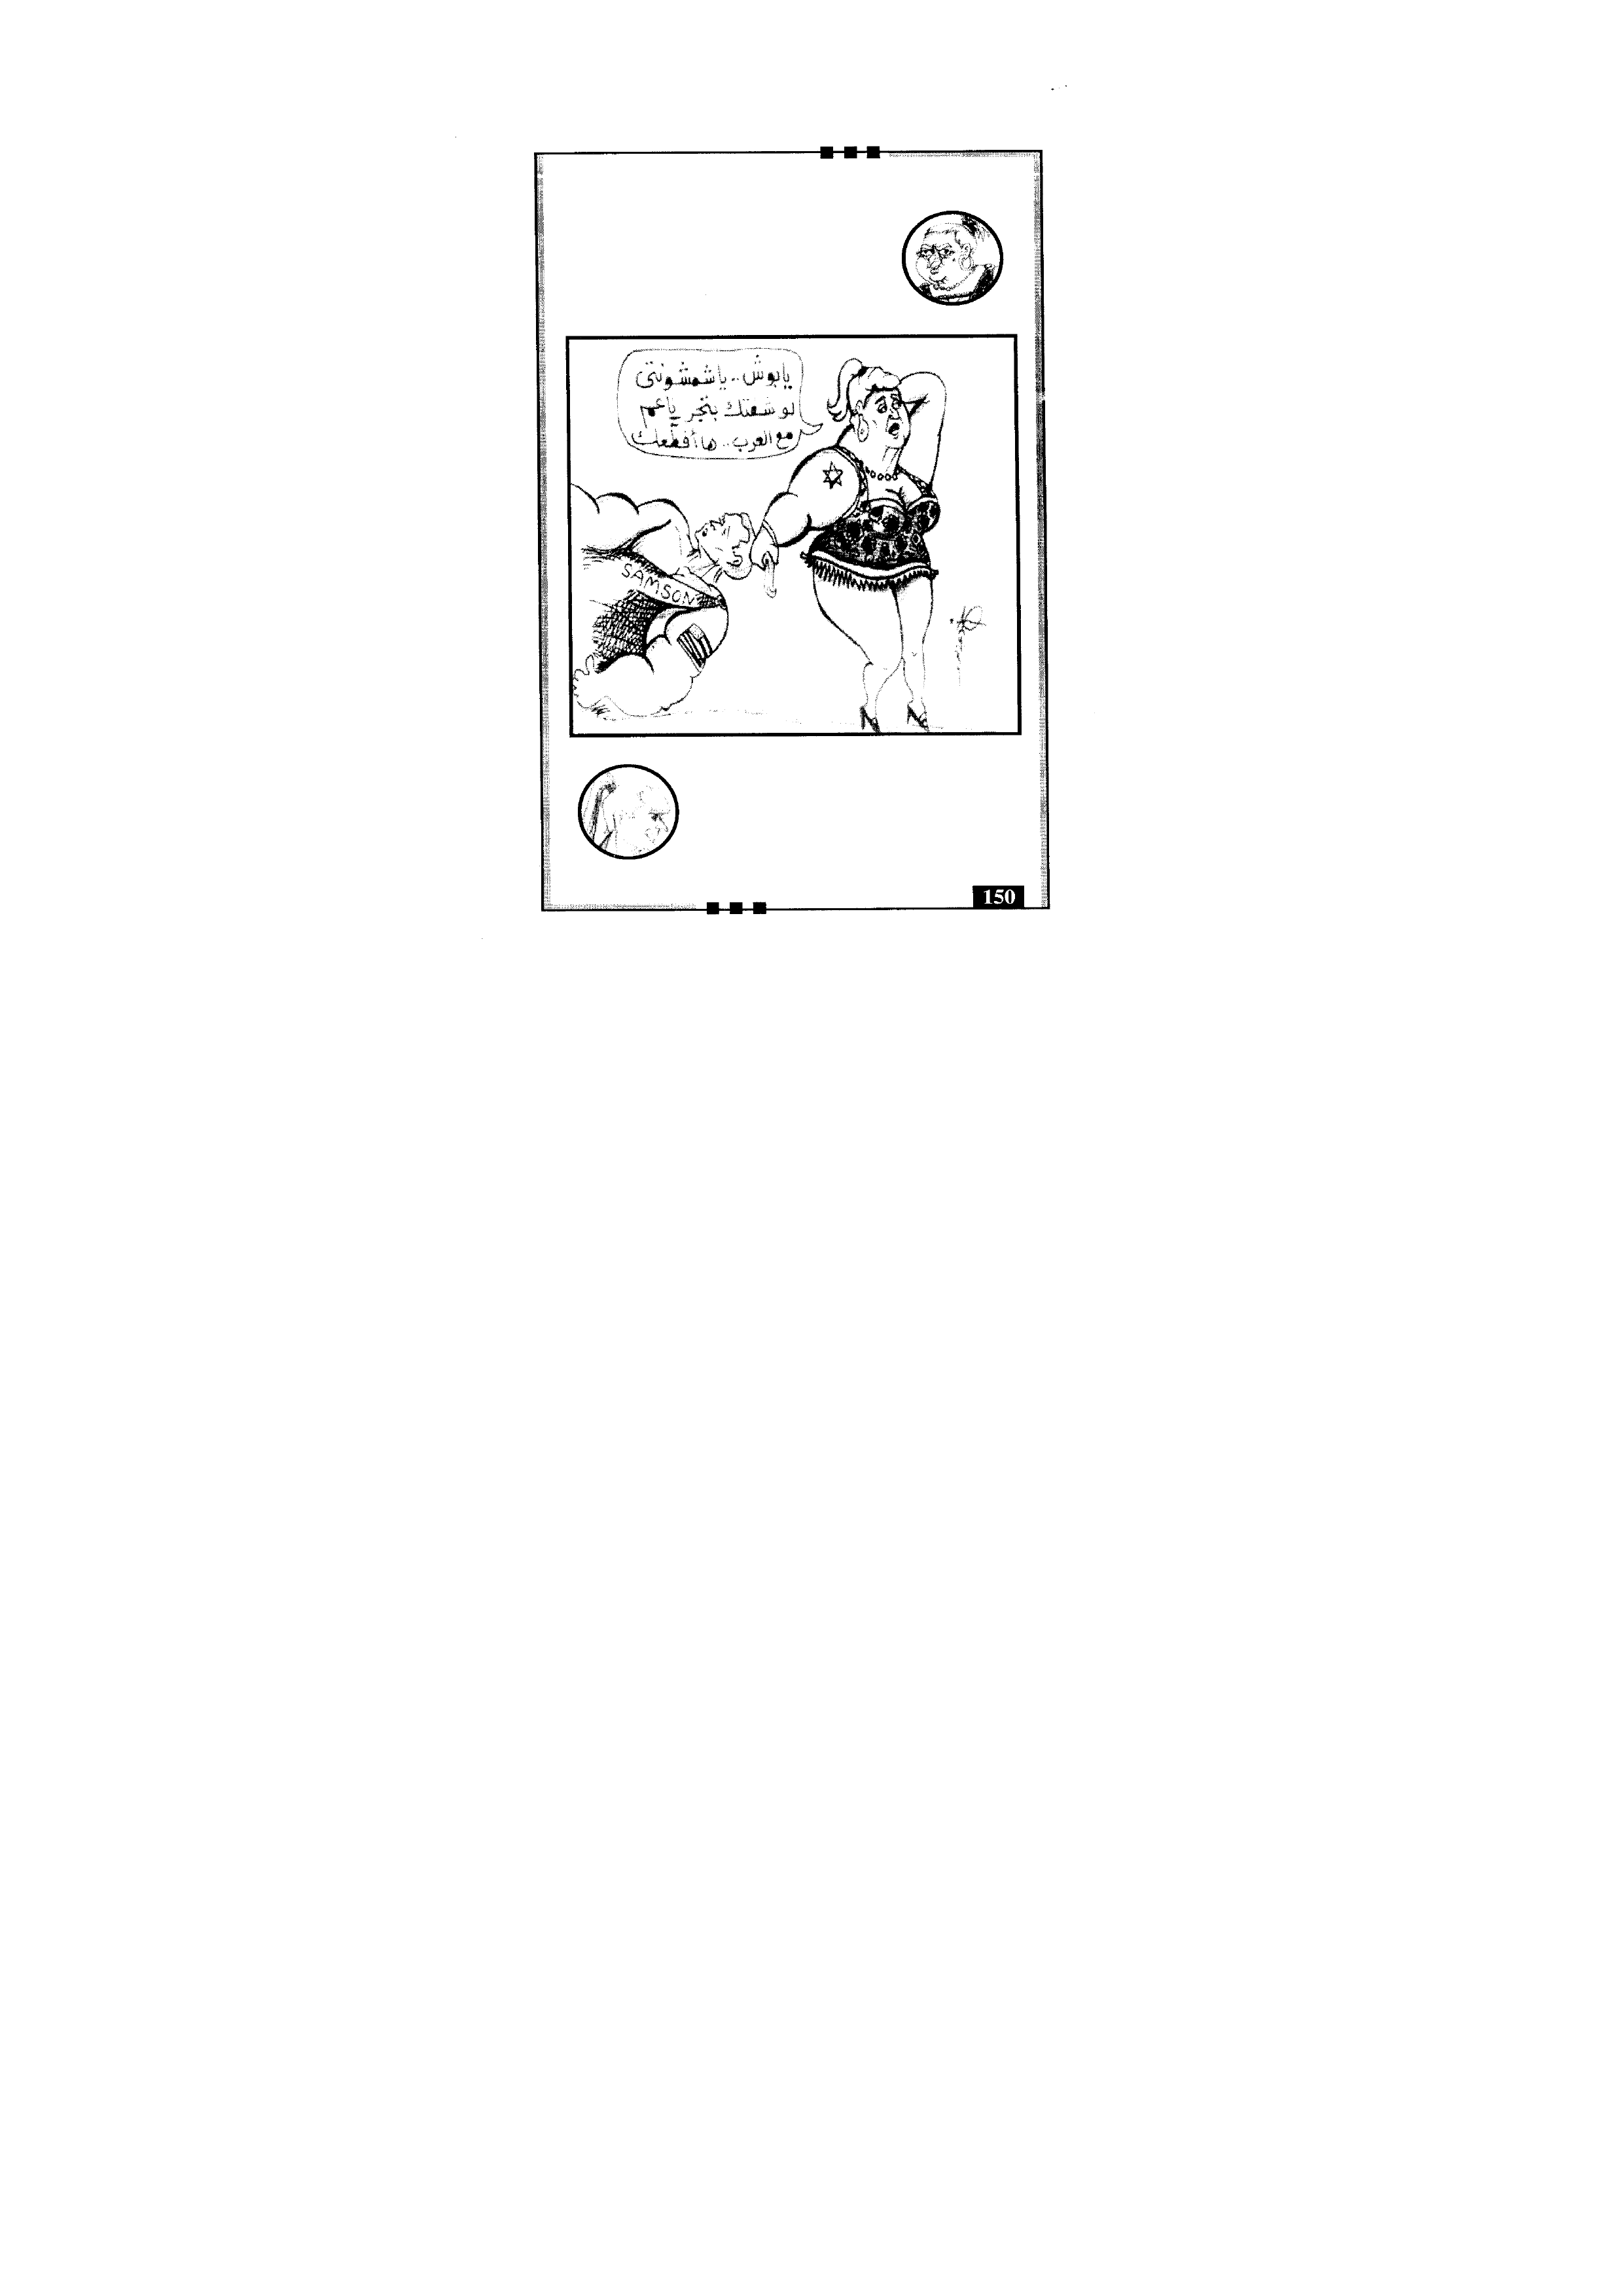 يا بوش.. يا شمشونتى
لو شفتك بتجر ياعم
مع العرب.. ها أقطعك
SAMSON
150